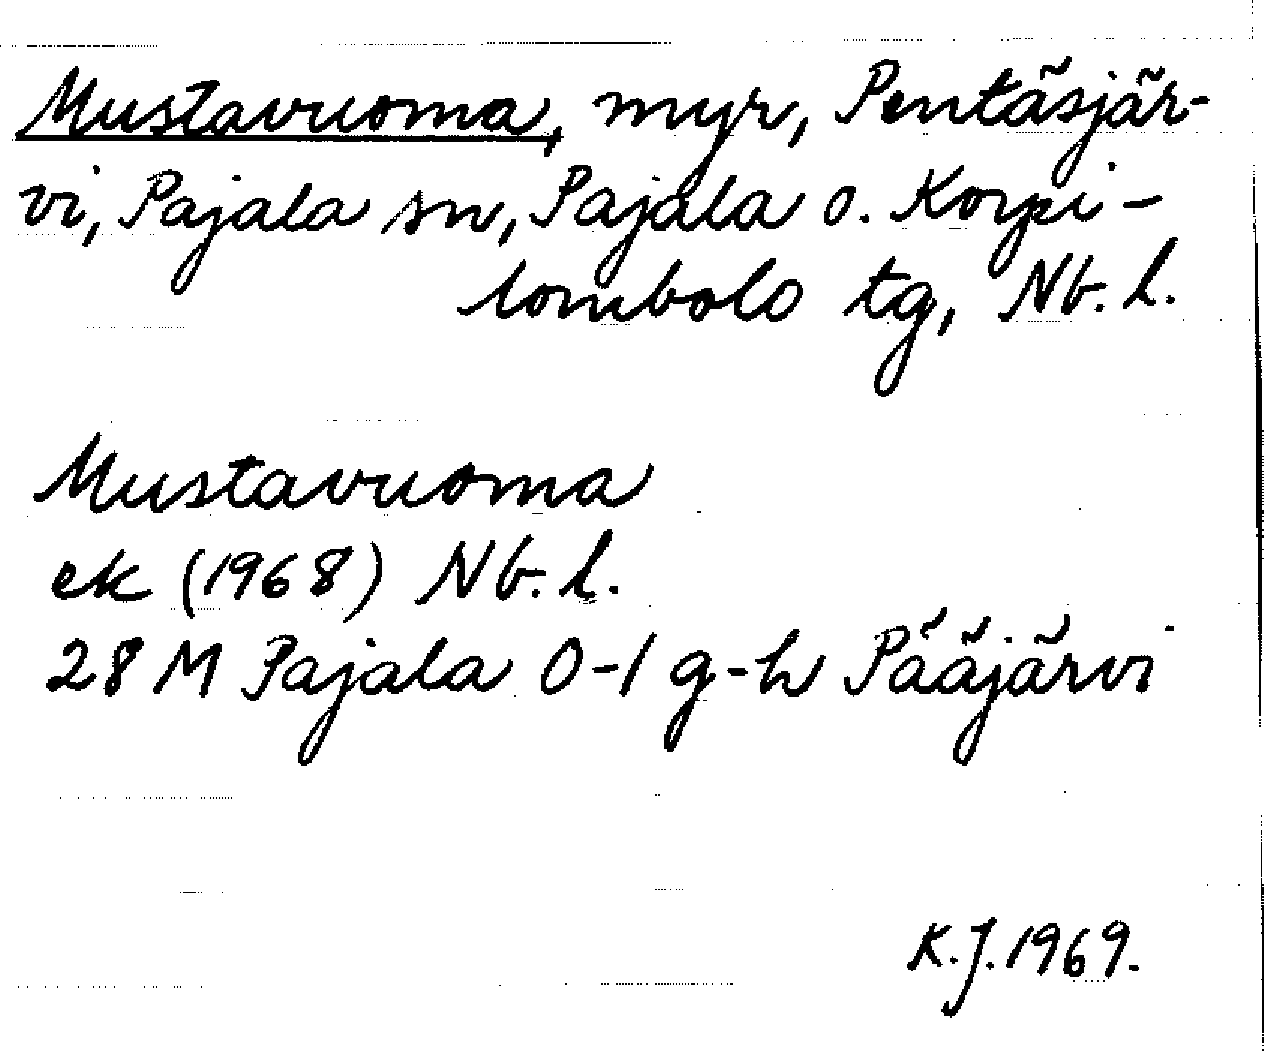 Mustavuoma, myr, Pentäsjär-
vi, Pajala sn, Pajala o. Korpi-
lombolo tg, Nb. l.
Mustavuoma
ek (1968) Nb. l.
28 M Pajala 0-1 g-h Pääjärvi
K.J. 1969.